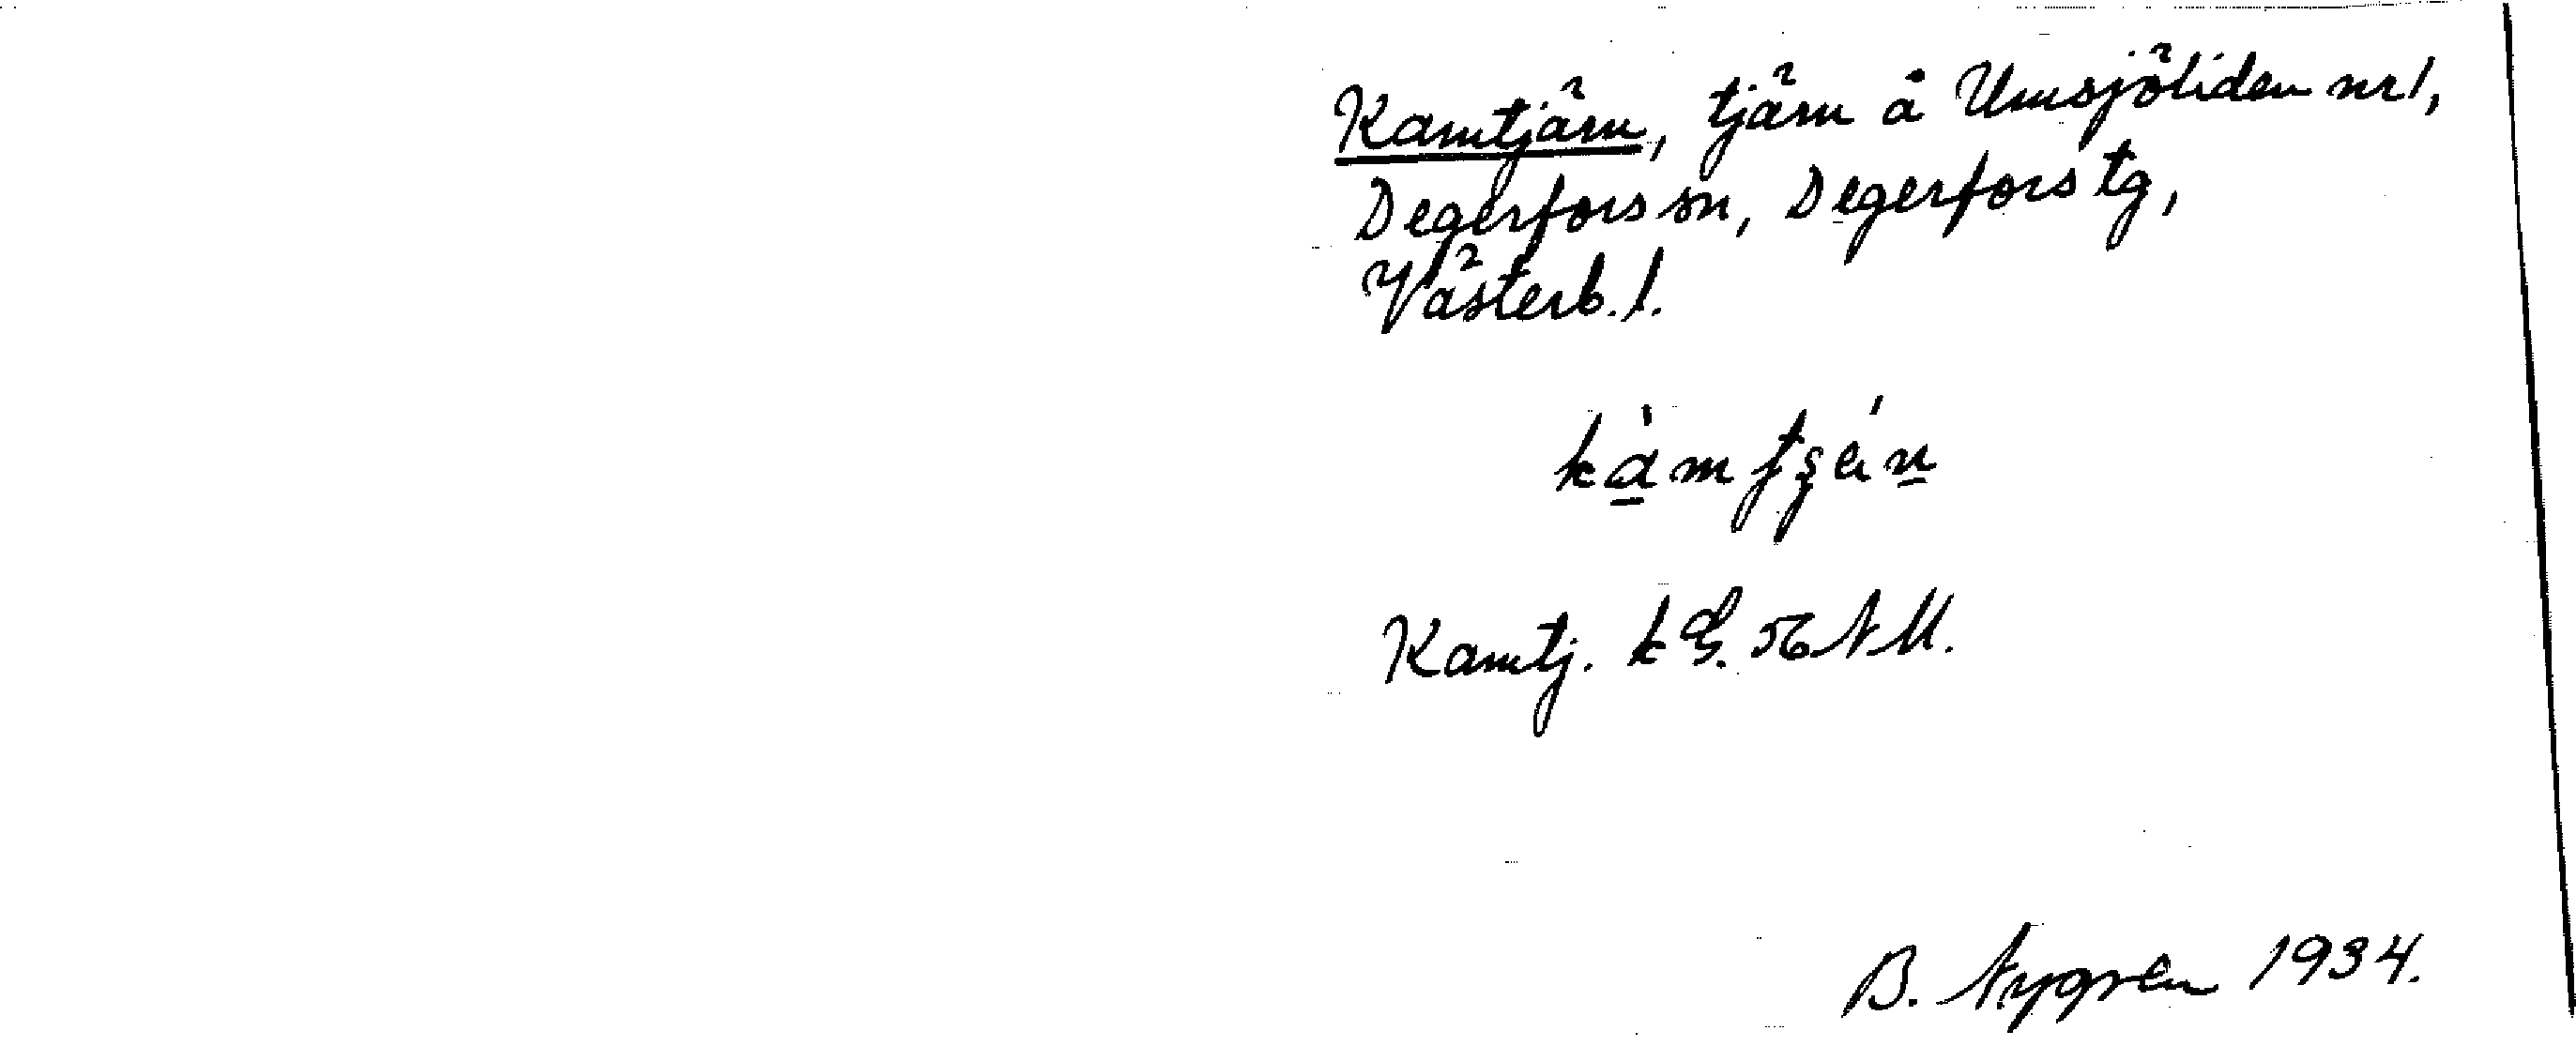 Kamtjärn, tjärn å Umsjöliden nr 1,
Degerfors sn, Degerfors tg,
Västerb. l.
Kamtj. k G. 56 NM.
B. Nygren 1934.